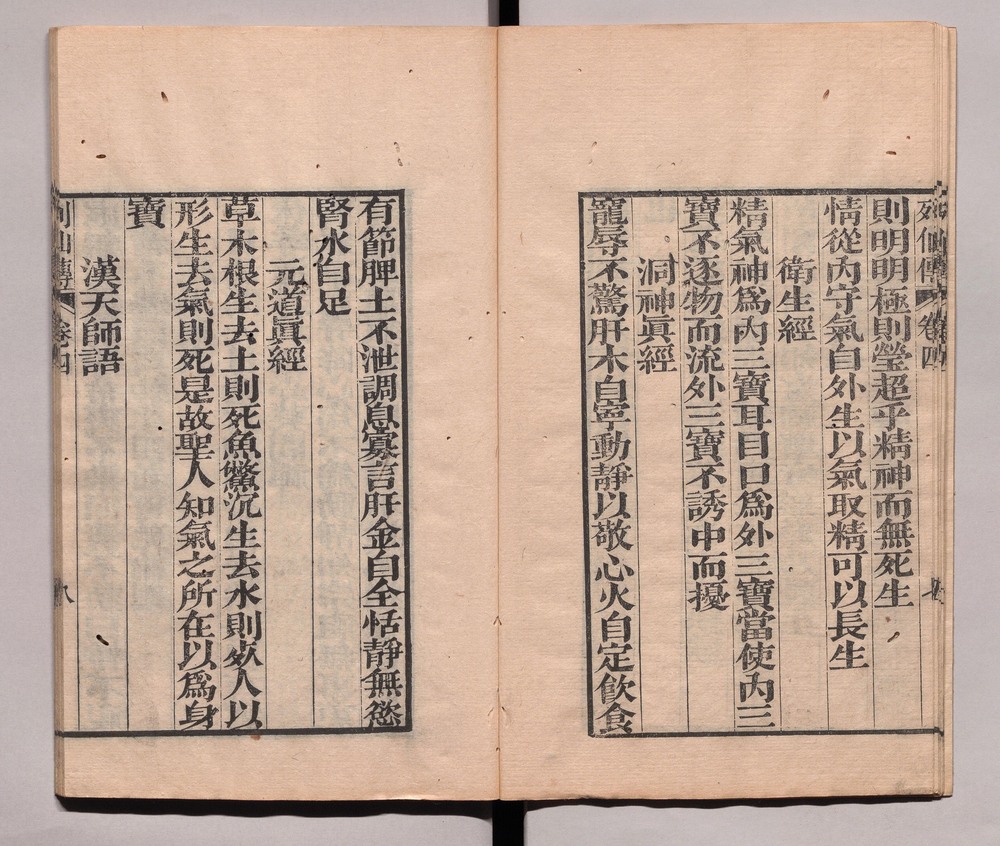 列仙傳 卷四
則明明極則瑩超乎精神而無死生
情從內守氣自外生以氣取精可以長生
衛生經
精氣神爲內三寶耳目口爲外三寶當使內三
寶不逐物而流外三寶不誘中而擾
洞神眞經
寵辱不驚肝木自寧動靜以敬心火自定飮食
有節脾土不泄調息寡言肝金自全恬靜無慾
腎水自足
元道眞經
草木根生去土則死魚鱉沉生去水則死人以
形生去氣則死是故聖人知氣之所在以爲身
寶
漢天師語
列仙傳 卷四 八